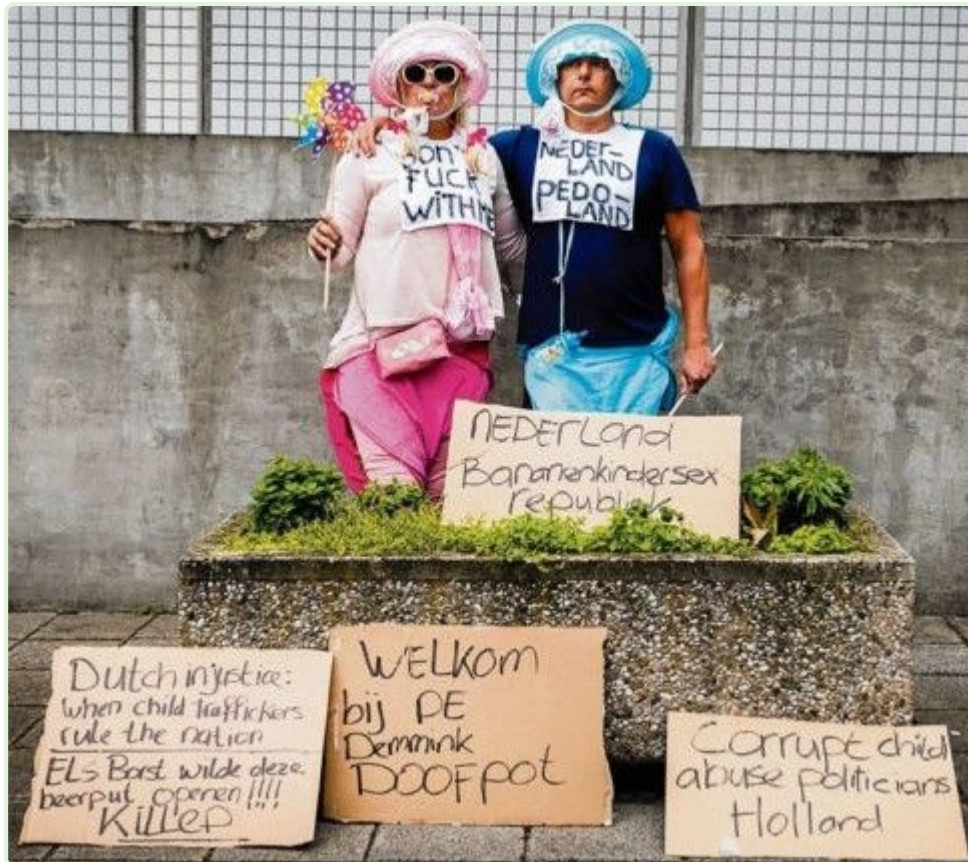 DON'T
FUCK
WITH ME
NEDER-
LAND
PEDO-
LAND
NEDERLAND
Bananenkindersex
republiek
Dutch injustice:
when child traffickers
rule the nation
ELS Borst wilde deze
beerput openen!!!!
Killed
WELKOM
bij DE
Demmink
DOOFpot
Corrupt child
abuse politicians
Holland